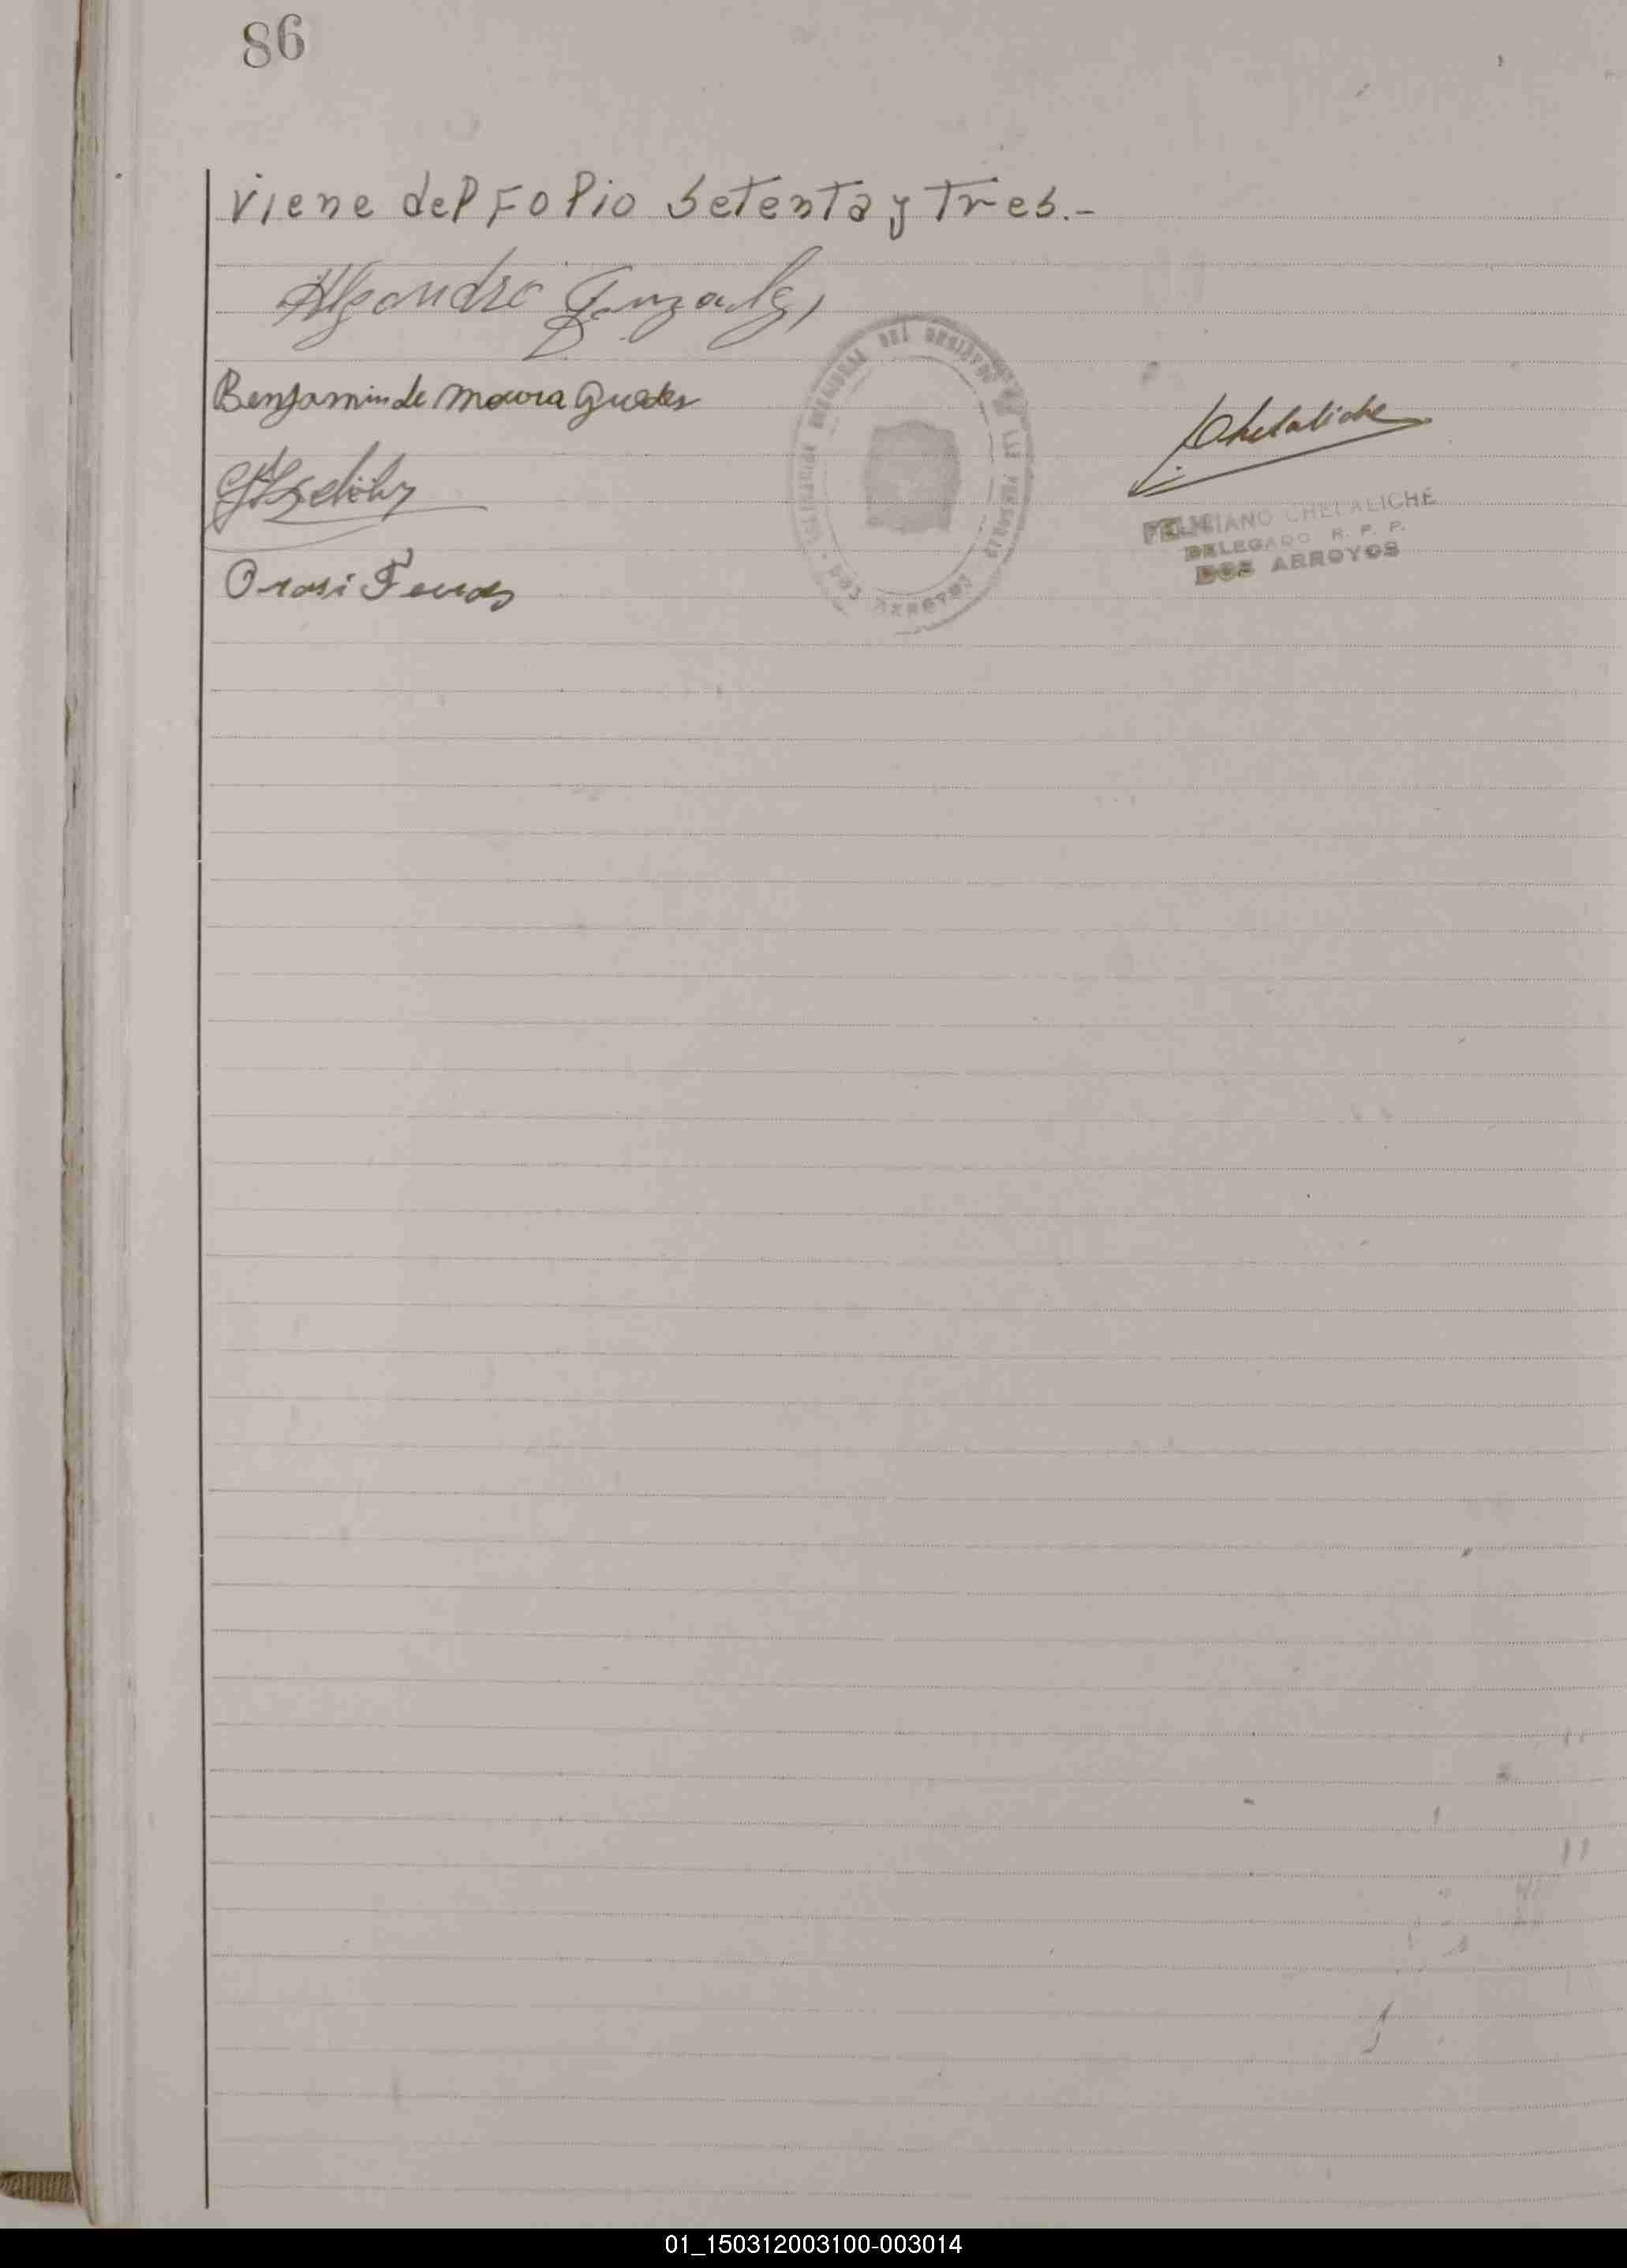 86
Viene del Folio setenta y Tres.-
Alejandro Gonzalez
Benjamin de Moura Guedes
Chelaliche
FELICIANO CHELALICHE
DELEGADO R. P. P.
DOS ARROYOS
DOS ARROYOS
01_150312003100-003014